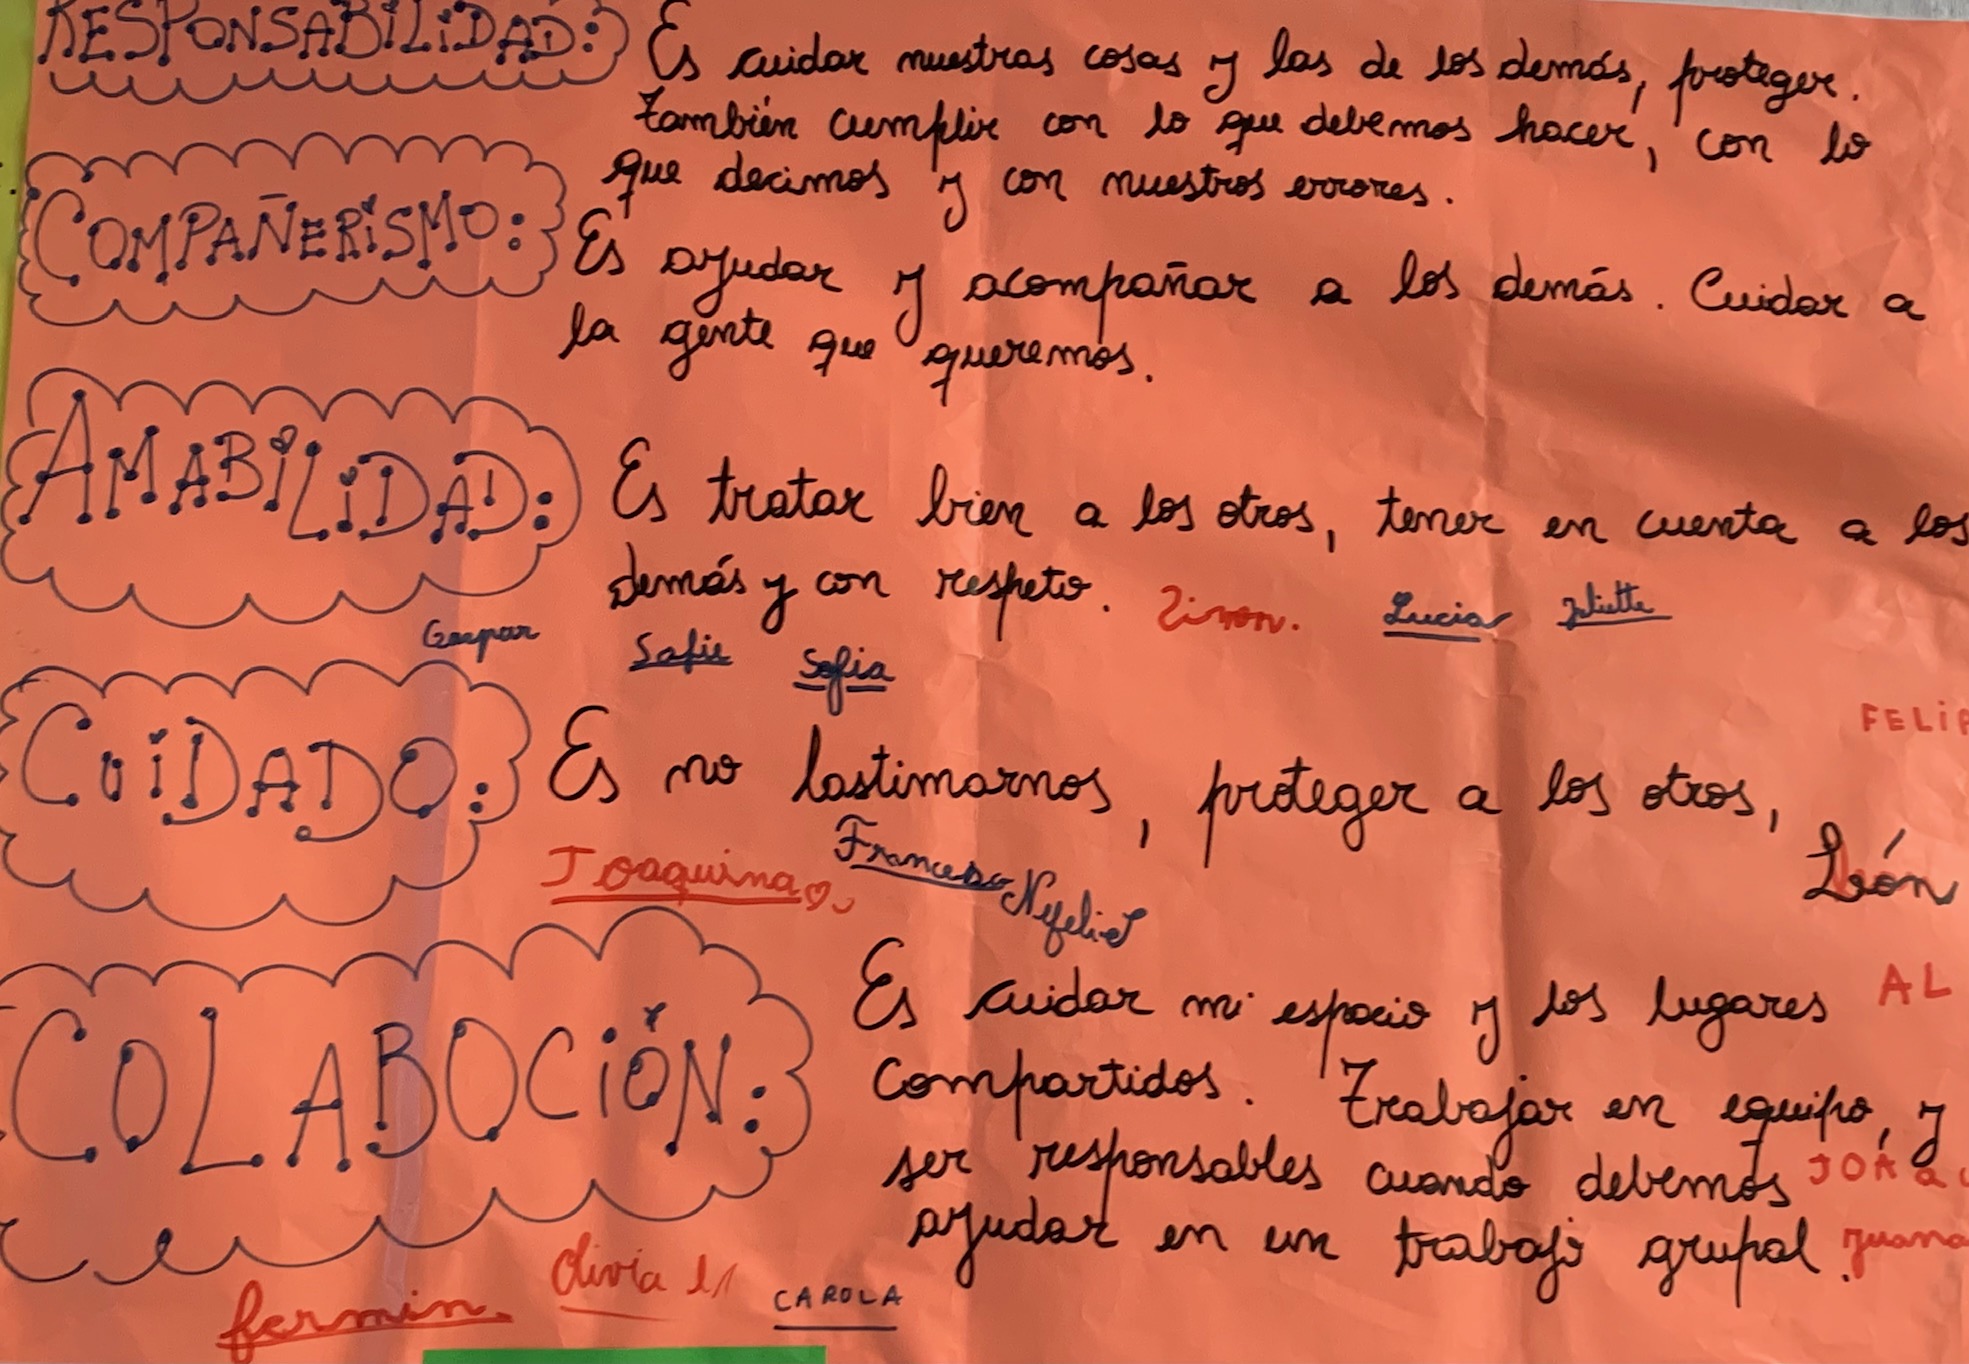 RESPONSABILIDAD: Es cuidar nuestras cosas y las de los demás, proteger.
también cumplir con lo que debemos hacer, con lo
que decimos y con nuestros errores.
COMPAÑERISMO: Es ayudar y acompañar a los demás. Cuidar a
la gente que queremos.
AMABILIDAD: Es tratar bien a los otros, tener en cuenta a los
demás y con respeto. Simon. Lucia Juliette
Gaspar Sofia
FELIP
CUIDADO: Es no lastimarnos, proteger a los otros,
Joaquina Francesco León
COLABOCIÓN: Es cuidar mi espacio y los lugares AL
compartidos. Trabajar en equipo, y
ser responsables cuando debemos JOAQU
ayudar en un trabajo grupal. Juana
fermin. Olivia CAROLA